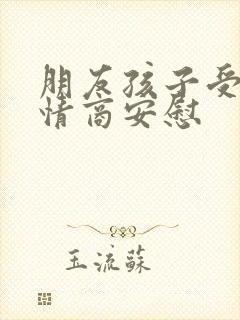 朋友孩子受
情商安慰
玉流蘇